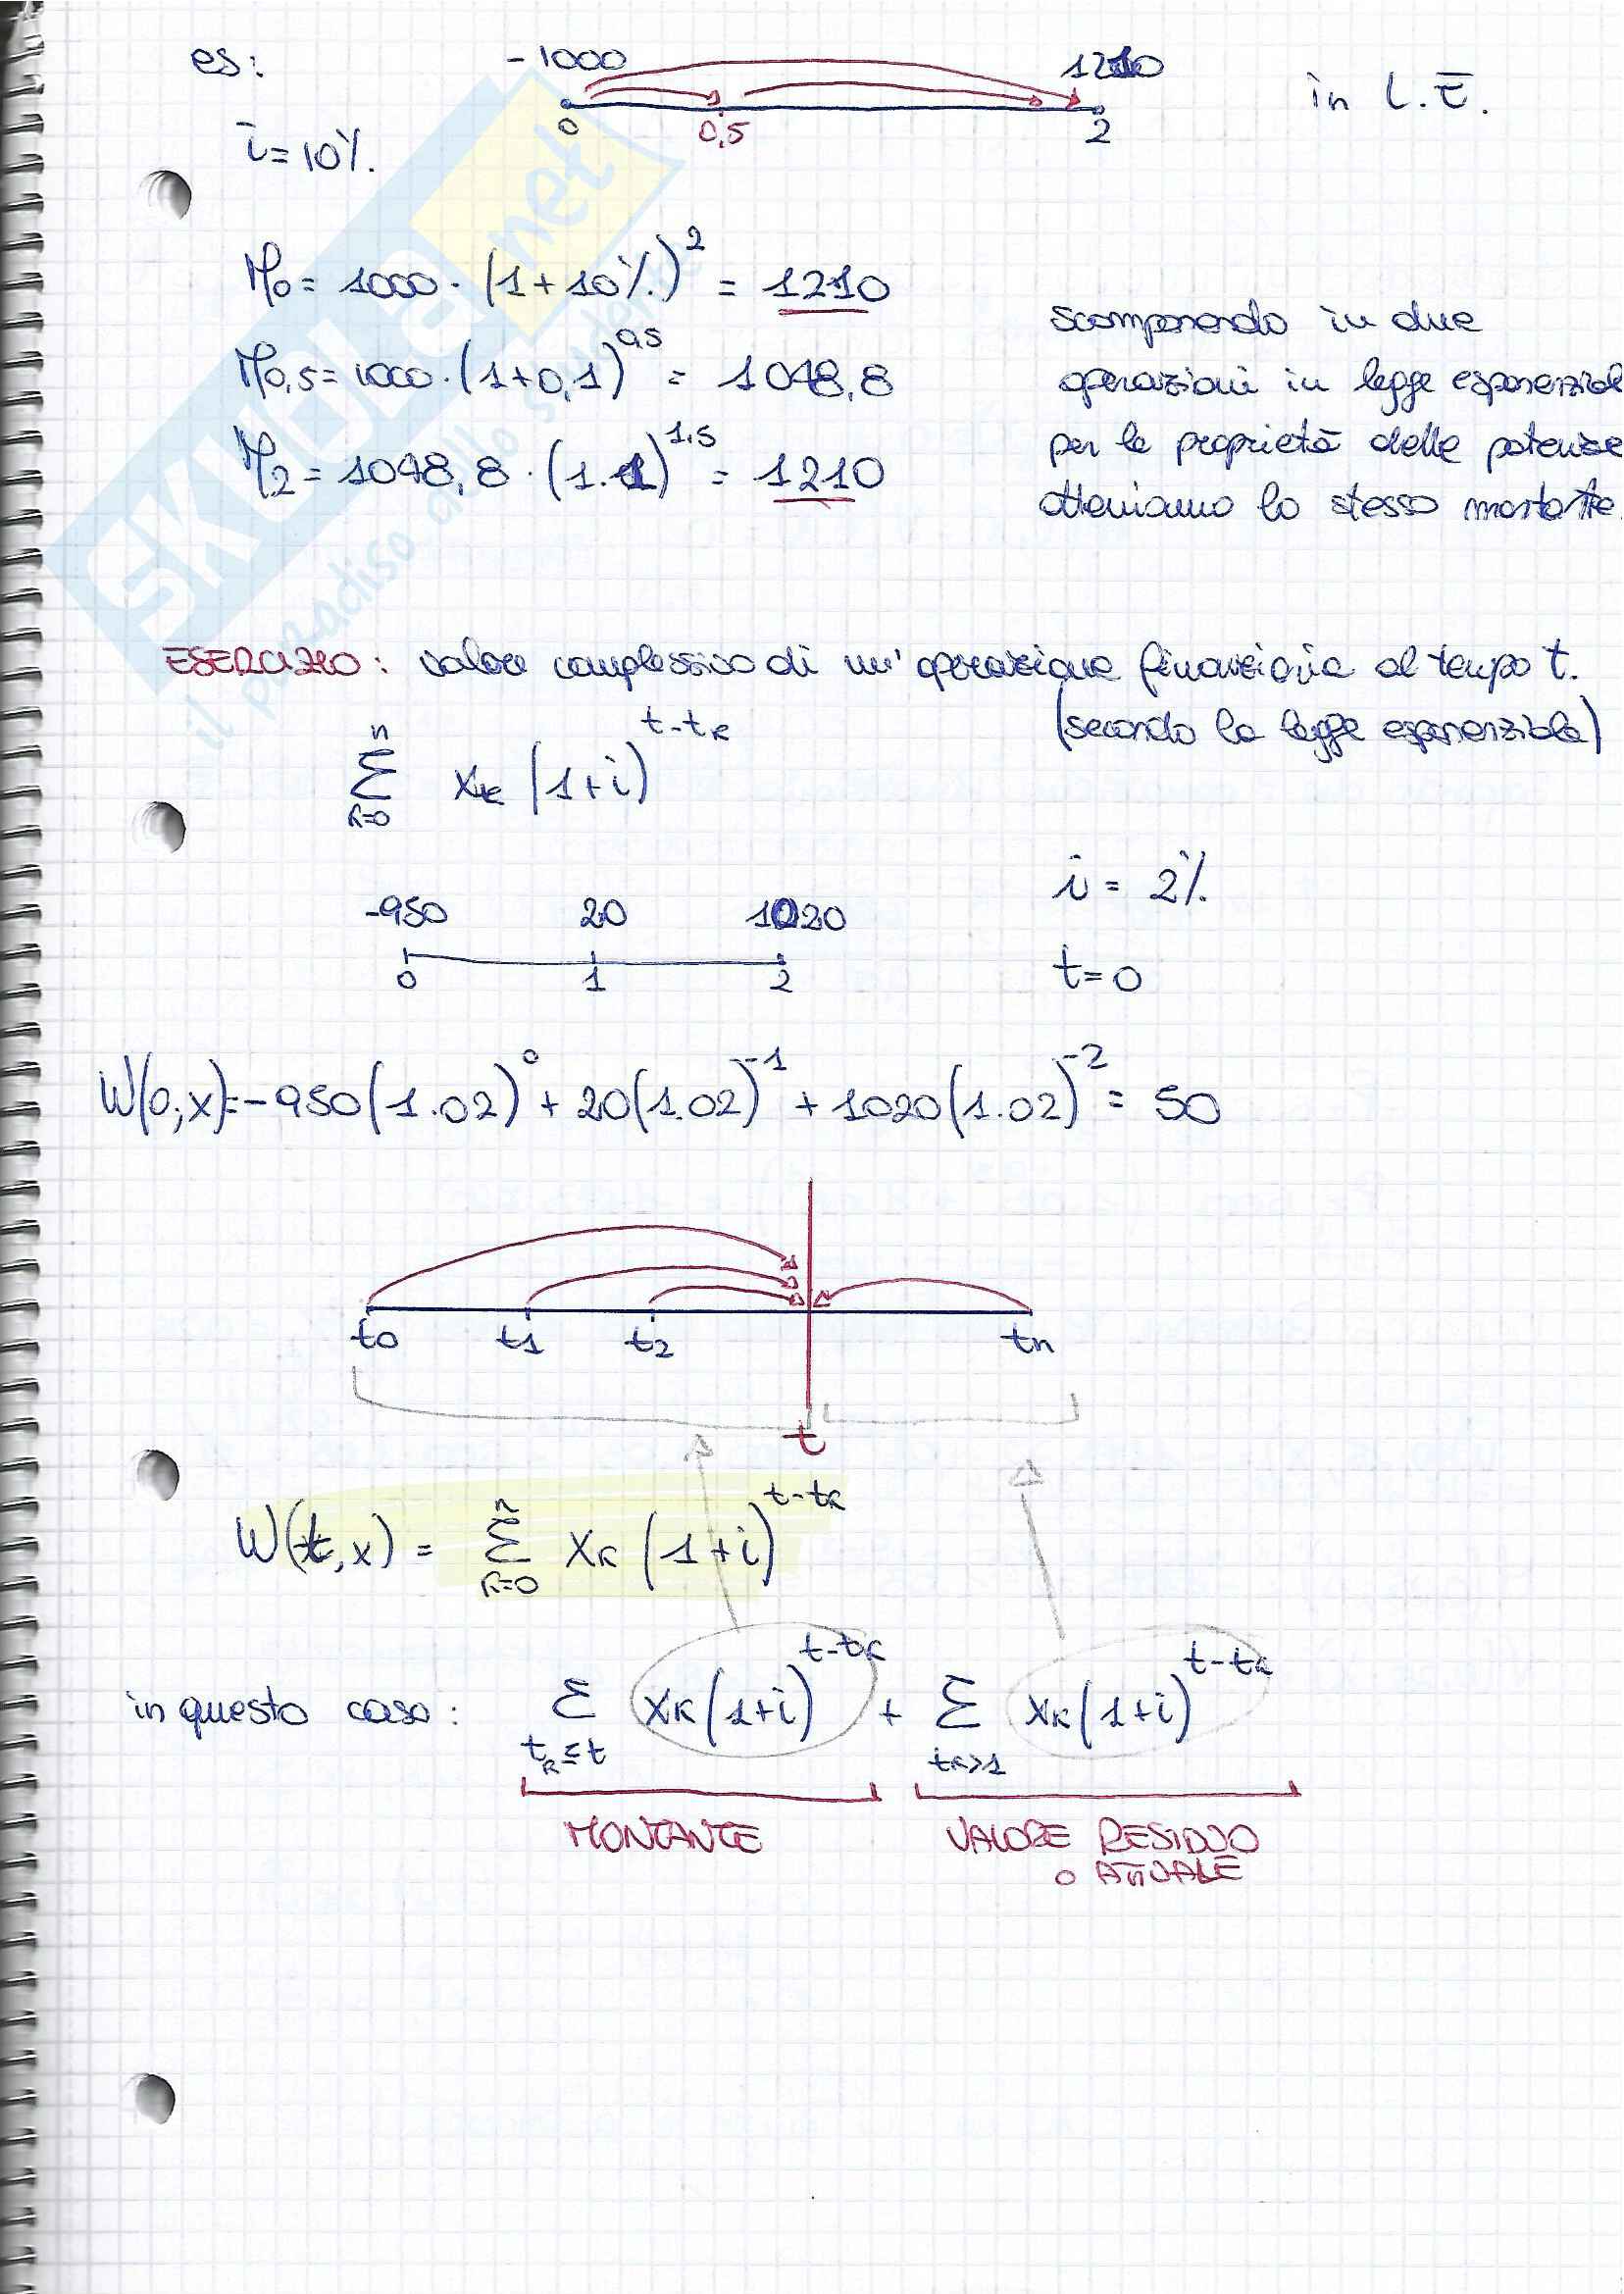 es:
-1000
1210
in L.E.
0
0,5
2
i = 10%.
M0 = 1000 · (1+10%)^2 = 1210
M0,5 = 1000 · (1+0,1)^0,5 = 1048,8
M2 = 1048,8 · (1.1)^1.5 = 1210
scomponendo in due
operazioni in legge esponenziale
per le proprietà delle potenze
otteniamo lo stesso montante.
SKUOLA.net
il paradiso dello studente
ESERCIZIO: valore complessivo di un'operazione finanziaria al tempo t.
(secondo la legge esponenziale)
n
Σ xk (1+i)^t-tk
k=0
i = 2%
-950 20 1020
0 1 2
t=0
W(0,x)=-950(1.02)^0 + 20(1.02)^-1 + 1020(1.02)^-2 = 50
t0 t1 t2 tn
t
W(t,x) = Σ xk (1+i)^t-tk
n
k=0
in questo caso: Σ xk(1+i)^t-tk + Σ xk(1+i)^t-tk
tk≤t
tk>1
MONTANTE
VALORE RESIDUO
o ATTUALE